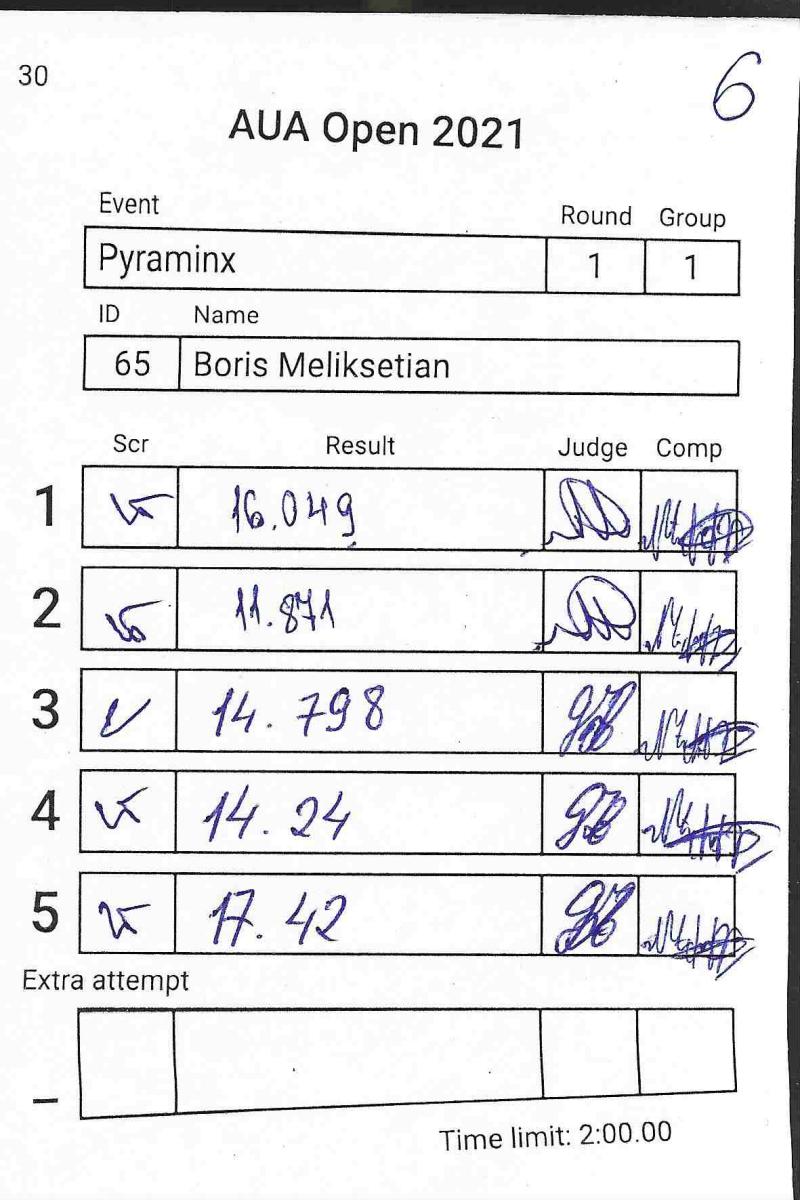 30
6
AUA Open 2021
Event Round Group
Pyraminx 1 1
ID Name
65 Boris Meliksetian
Scr Result Judge Comp
1 16.049
2 11.871
3 14.798
4 14.24
5 17.42
Extra attempt
_
Time limit: 2:00.00